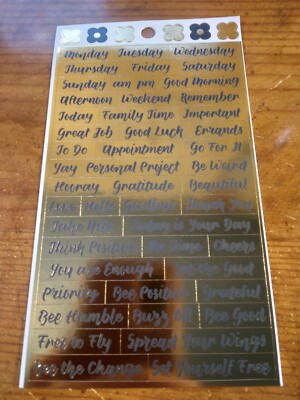 Monday Tuesday Wednesday
Thursday Friday Saturday
Sunday am pm Good Morning
Afternoon Weekend Remember
Today Family Time Important
Great Job Good Luck Errands
To Do Appointment Go For It
Yay Personal Project Be Weird
Hooray Gratitude Beautiful
Love Hello Goodbye Thank You
Take Note Today is Your Day
Think Positive Me Time Cheers
You are Enough See the Good
Priority Bee Positive Grateful
Bee Humble Buzz Off Bee Good
Free to Fly Spread Your Wings
See the Change Set Yourself Free